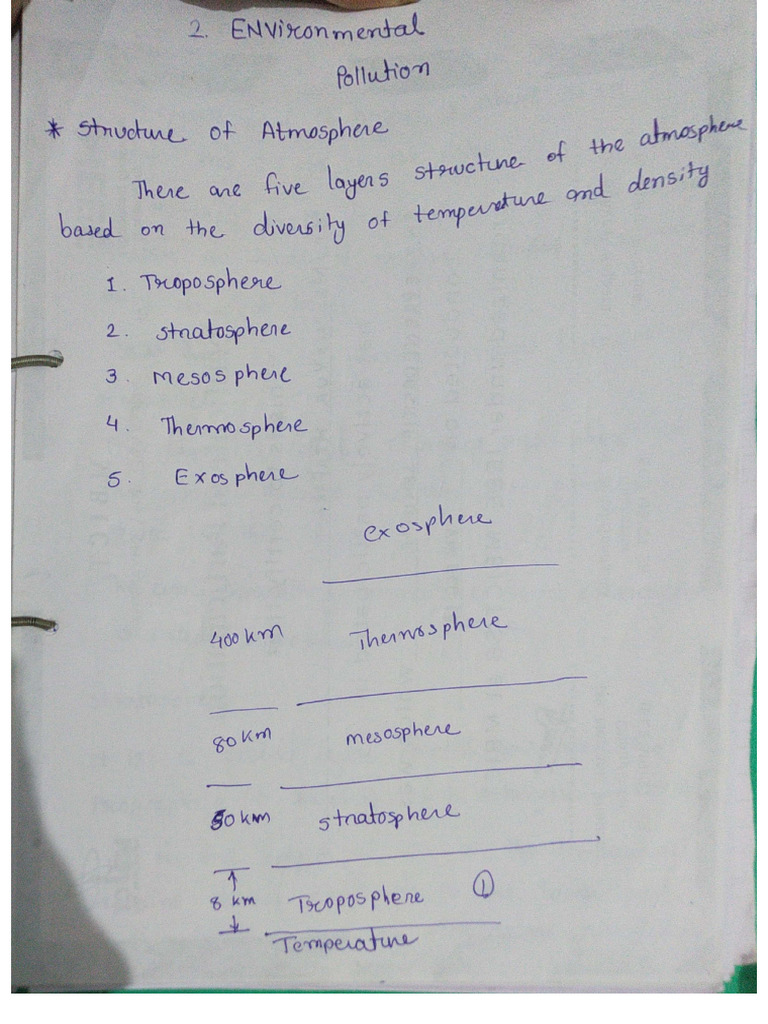 2. ENVironmental
Pollution
* Structure of Atmosphere
There are five layers structure of the atmosphere
based on the diversity of temperature and density
1. Troposphere
2. stratosphere
3. mesosphere
4. Thermosphere
5. Exosphere
exosphere
400 km Thermosphere
80 km mesosphere
50 km stratosphere
8 km Troposphere 1
Temperature